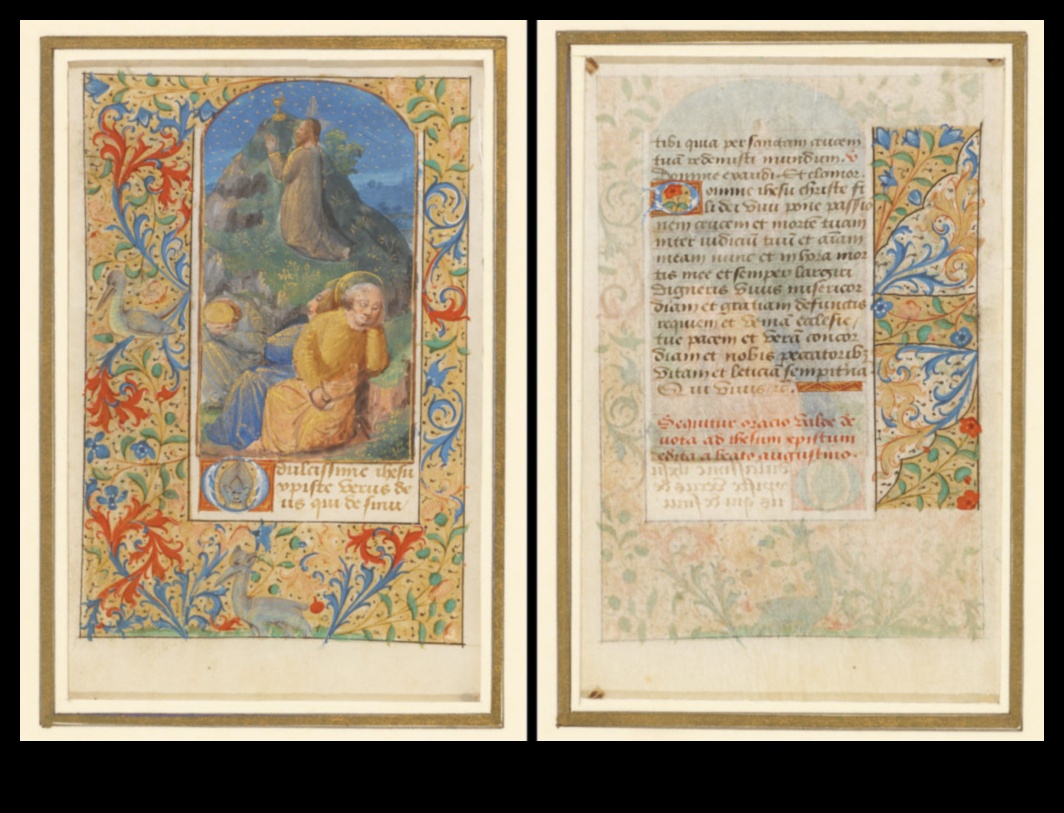 dulcissime ihesu
xpiste verus de
us qui de sinu
tibi quia per sanctam crucem
tuã redemisti mundum. v
Domine exaudi. Et clamor.
Domine ihesu christe fi
li dei vivi pone passio
nem crucem et mortẽ tuam
inter iudiciũ tuũ et aĩam
meam nunc et in hora mor
tis mee et semper largiri
digneris vivis misericor
diam et gr̃atiam defunctis
requiem et veniã ecclesie
tue pacem et verã concor
diam et nobis peccatorib3
vitam et leticiã sempit̃na
Qui vivis
Sequitur oracio valde de
vota ad ihesum xpistum
edita a beato augustino.